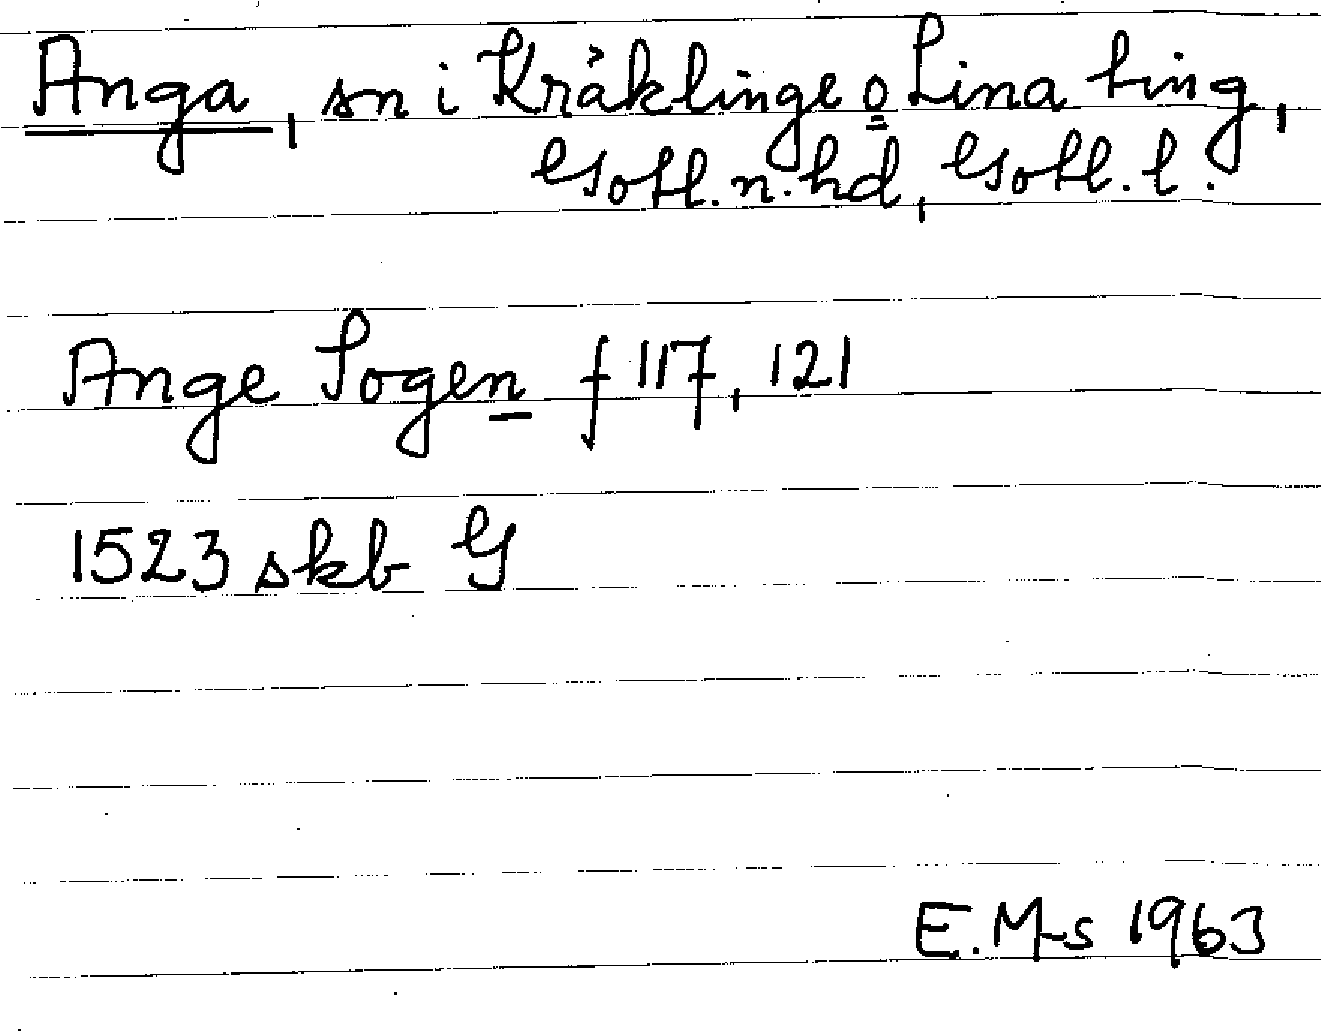 Anga, sn i Kräklinge o Lina ting,
Gotl. n. hd, Gotl. l.
Ange Sogen f 117, 121
1523 skb G
E. M-s 1963